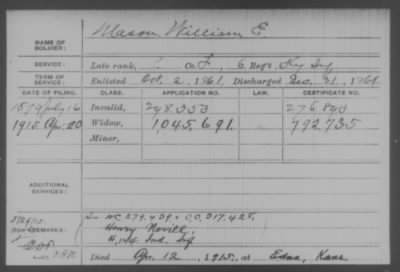 Mason, William E.
NAME OF SOLDIER:
SERVICE: Late rank, Co. F, 6 Reg't Ky Inf
TERM OF SERVICE: Enlisted Oct. 2, 1861. Discharged Dec. 31, 1864
DATE OF FILING. CLASS. APPLICATION NO. LAW. CERTIFICATE NO.
1879 July 16 Invalid, 298.353
1915 Apr. 20 Widow, 1,045.691. 792,735
Minor,
ADDITIONAL SERVICES:
REMARKS: WC 279,439. C.O. 317,425.
Henry Nevill,
H, 144 Ind. Inf
Died Apr. 12, 1925. at Edna, Kans.